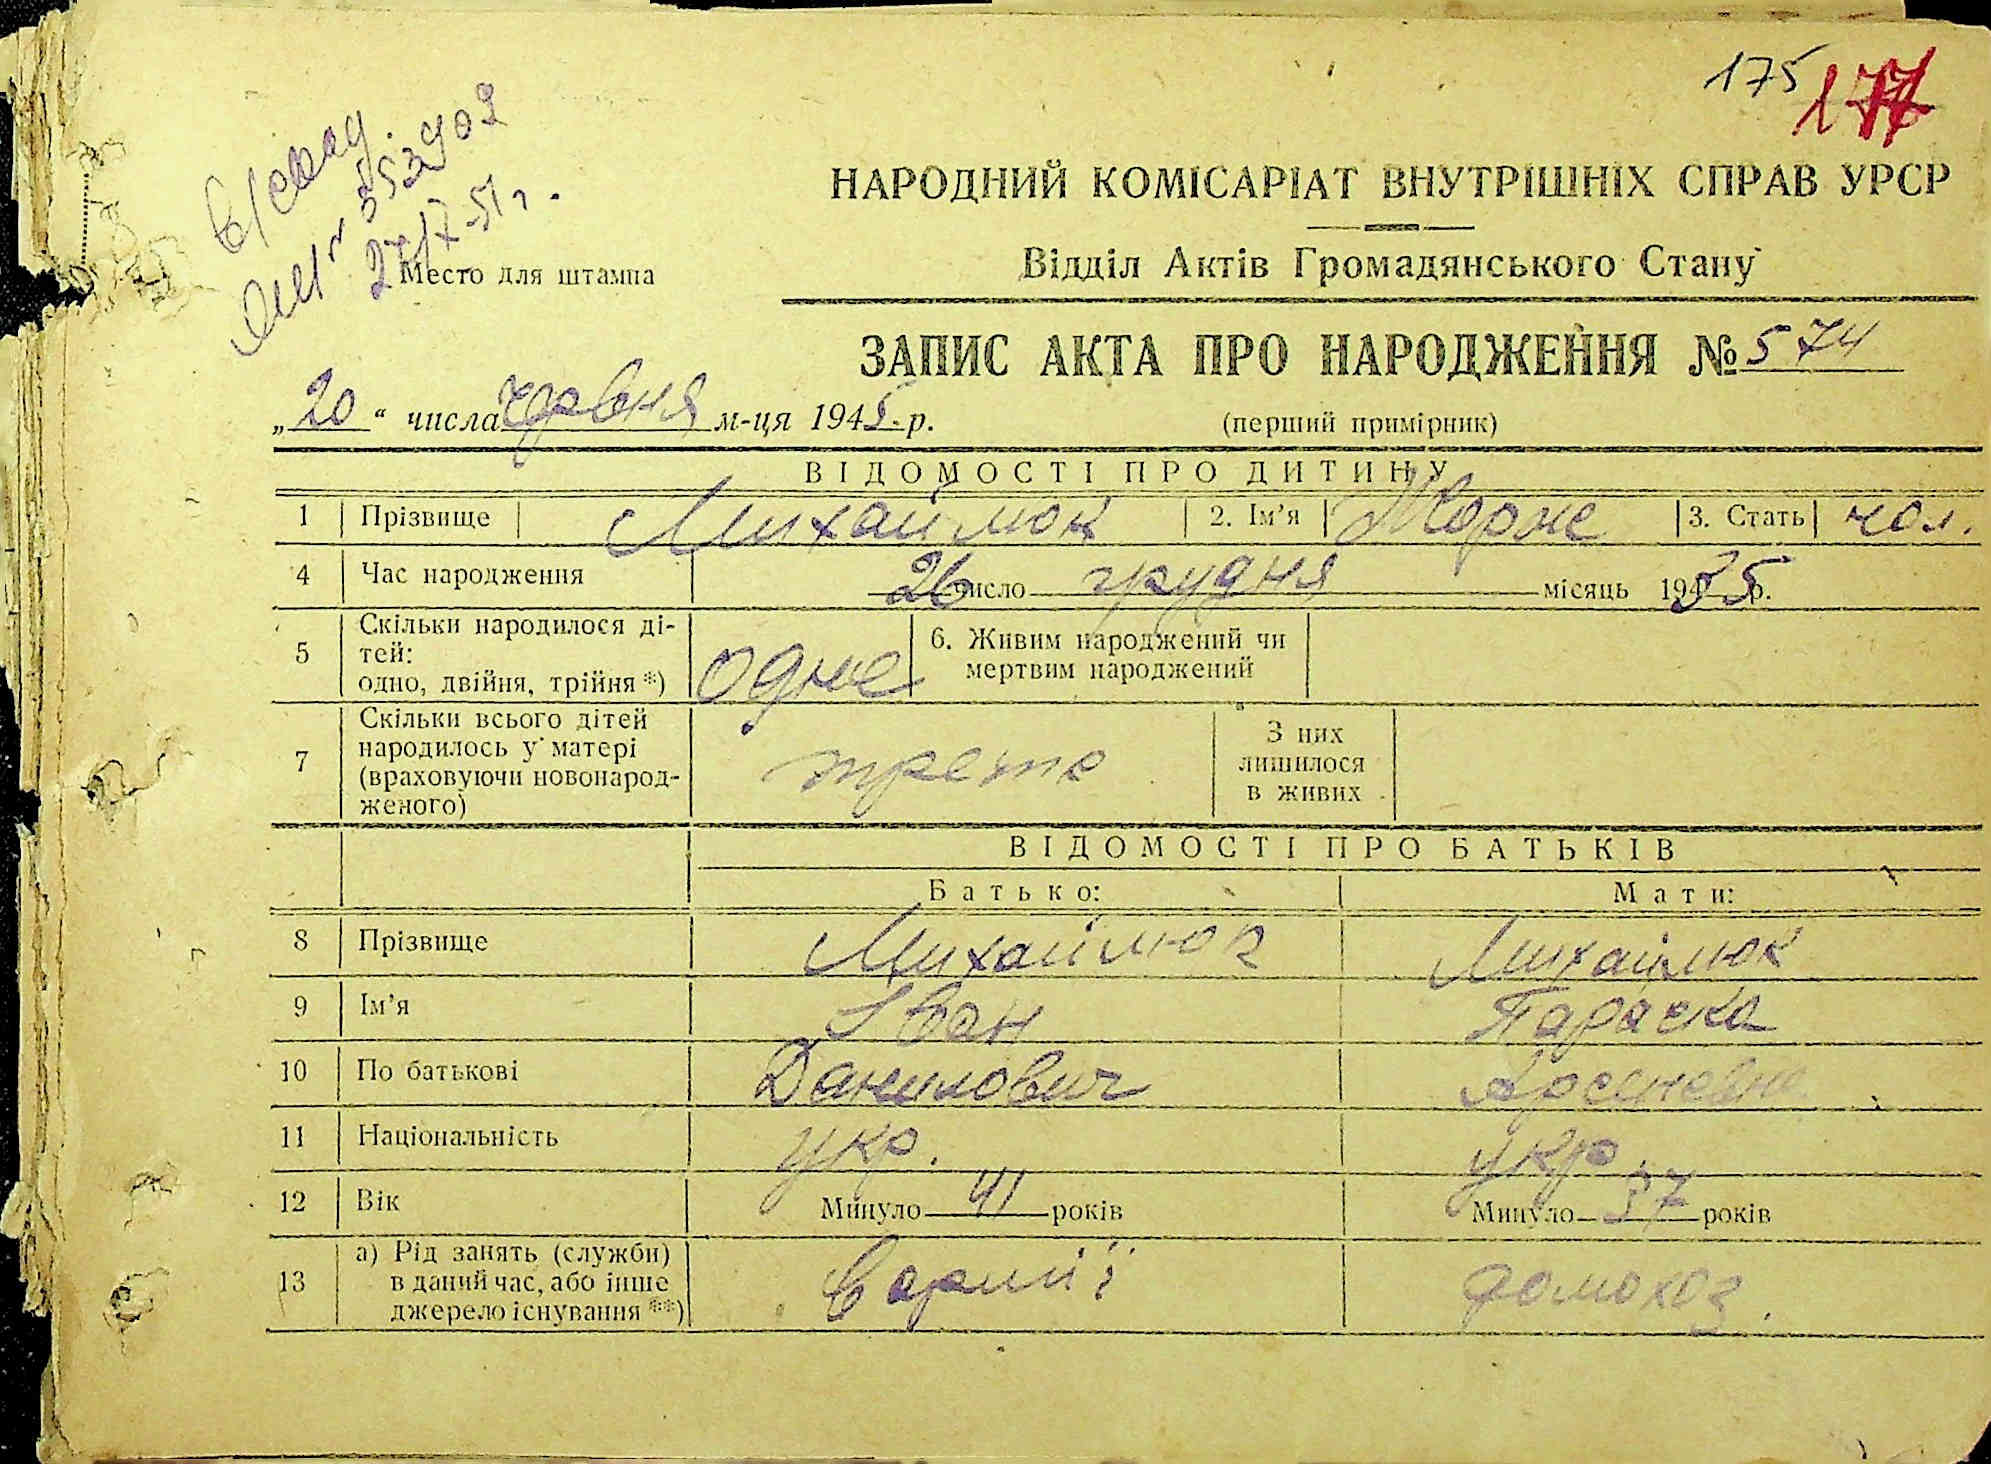 175 177
В/свид.
№ 553902
27/X-51 г.
Место для штампа
НАРОДНИЙ КОМІСАРІАТ ВНУТРІШНІХ СПРАВ УРСР
Відділ Актів Громадянського Стану
ЗАПИС АКТА ПРО НАРОДЖЕННЯ № 574
„20“ числа червня м-ця 1945 р.
(перший примірник)
ВІДОМОСТІ ПРО ДИТИНУ
1 Прізвище Михаймюк 2. Ім’я Жорже 3. Стать чол.
4 Час народження 26 число грудня місяць 1935 р.
5 Скільки народилося ді-
тей:
одно, двійня, трійня *) одне 6. Живим народжений чи
мертвим народжений
7 Скільки всього дітей
народилось у матері
(враховуючи новонарод-
женого) третє З них
лишилося
в живих
ВІДОМОСТІ ПРО БАТЬКІВ
Батько: Мати:
8 Прізвище Михаймюк Михаймюк
9 Ім’я Іван Параска
10 По батькові Данилович Арсенєвна
11 Національність укр. укр.
12 Вік Минуло 41 років Минуло 37 років
13 а) Рід занять (служби)
в даний час, або інше
джерело існування **) В армії домохоз.